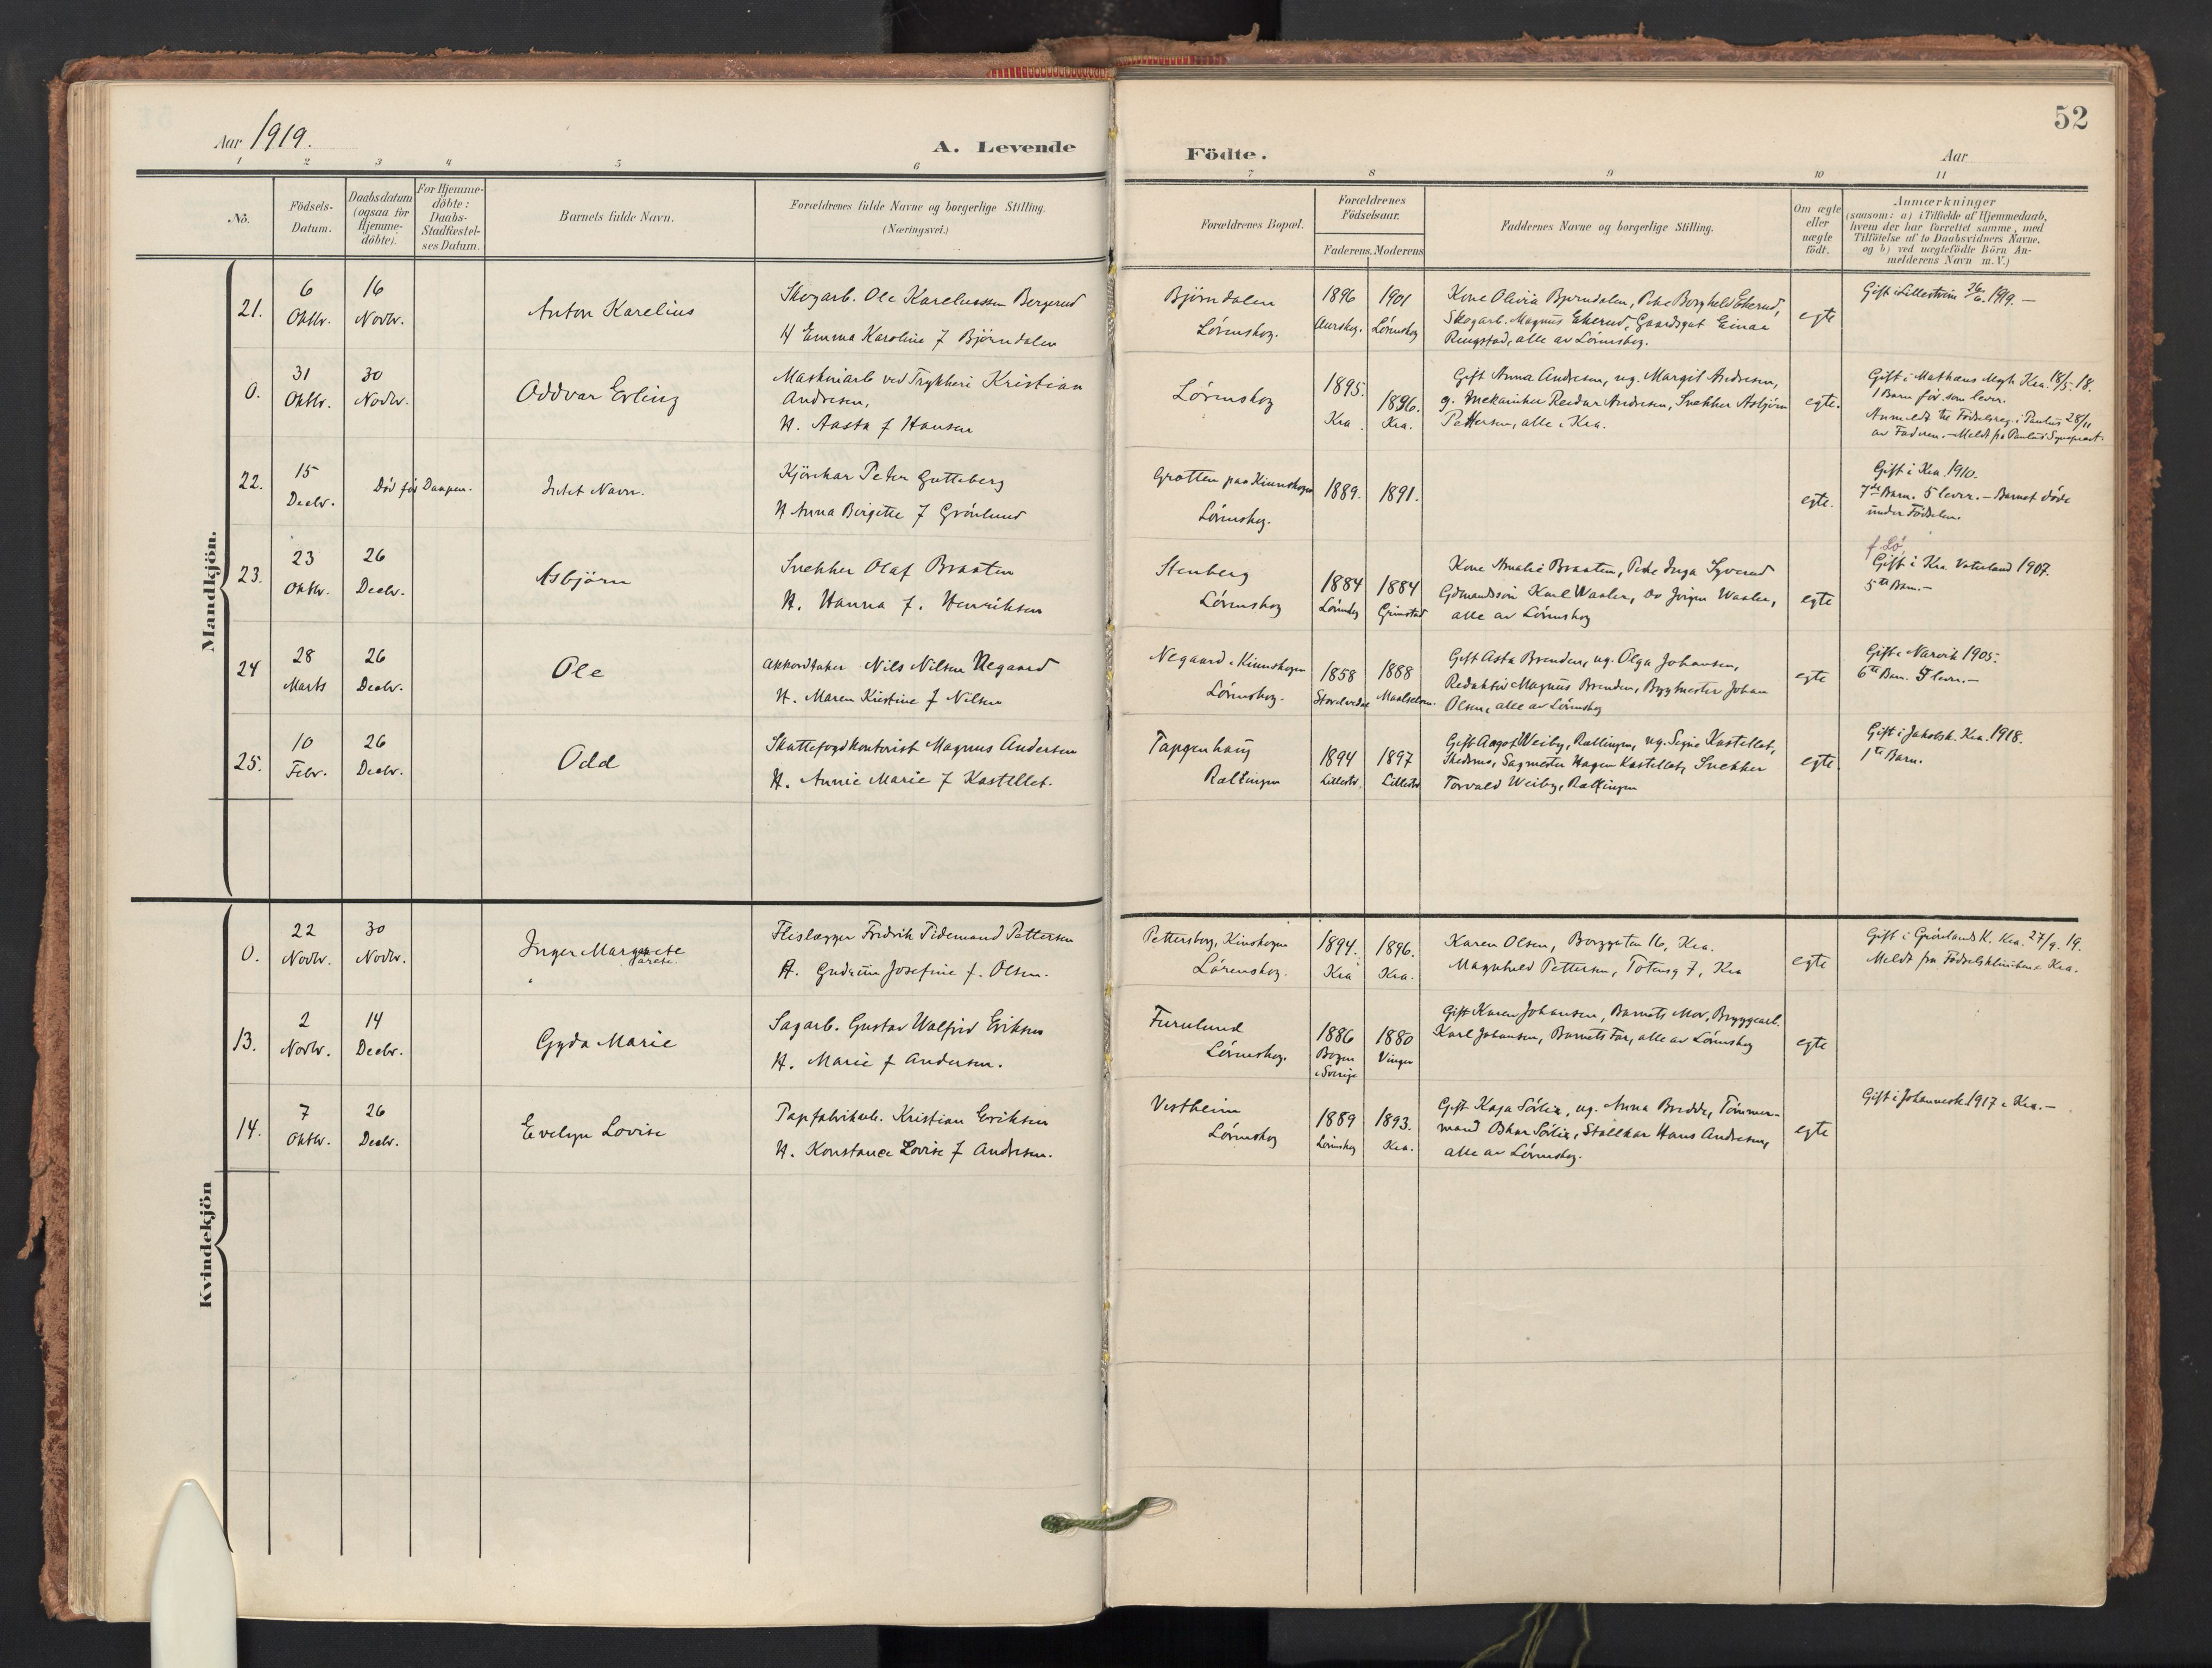 Aar 1919.
A. Levende
Födte.
Aar
52
1 2 3 4 5 6 7 8 9 10 11
No.
Födsels-Datum.
Daabsdatum (ogsaa for Hjemme-döbte).
For Hjemme-döbte: Daabs-Stadfæstel-ses Datum.
Barnets fulde Navn.
Forældrenes fulde Navne og borgerlige Stilling.
(Næringsvei.)
Forældrenes Bopæl.
Forældrenes Födselsaar.
Faderens. Moderens
Faddernes Navne og borgerlige Stilling.
Om ægte eller uægte födt.
Anmærkninger
(saasom: a) i Tilfælde af Hjemmedaab,
hvem der har forrettet samme, med
Tilföielse af to Daabsvidners Navne.
og b) ved uægtefödte Börn An-
melderens Navn m. V.)
Mandkjön.
21.
6 Oktbr.
16 Novbr.
Anton Karelius
Skogarb. Ole Kareliussen Bergerud
H Emma Karoline f Björndalen
Björndalen
Lørenskog.
1896 Aurskog.
1901 Lørenskog
Kone Olivia Bjerndalen, Pike Borghild Ekerud,
Skogarb. Magnus Ekerud, Gaardsgut Einar
Ringstad, alle av Lørenskog.
egte
Gift i Lillestrøm 26/6. 1919. —
0.
31 Oktbr.
30 Novbr.
Oddvar Erling
Maskinarb ved Trykkeri Kristian
Andresen,
H. Aasta f Hansen
Lørenskog
1895. Kra.
1896. Kra.
Gift Anna Andresen, ug. Margit Andresen,
g. Mekaniker Reidar Andresen, Snekker Asbjørn
Pettersen, alle i Kra.
egte.
Gift i Mathæus Mgh. Kra. 18/5. 18.
1 Barn før som lever.
Anmeldt til Fødselsreg. i Paulus 28/11
av Faderen. – Meldt fra Paulus Sognepræst.
22.
15 Decbr.
Död før Daapen.
Intet Navn.
Kjörekar Peter Gutteberg
H Anna Birgitte f Grönlund
Grotten paa Kinnskogen
Lørenskog.
1889.
1891.
egte.
Gift i Kra 1910.
7de Barn. 5 lever. – Barnet døde
under Fødselen.
23.
23 Oktbr.
26 Decbr.
Asbjörn
Snekker Olaf Braaten
H. Hanna f. Henriksen
Stenberg
Lørenskog
1884 Lørenskog
1884 Grimstad
Kone Amalie Braaten, Pike Inga Syverud
Gdmandssön Karl Waaler, Do Jørgen Waaler,
alle av Lørenskog
egte
Gift i Kra Vaterland 1907.
5te Barn. –
24
28 Marts
26 Decbr.
Ole
Akkordtaker Nils Nilsen Negaard
H. Maren Kristine f Nilsen
Negaard i Kinnskogen
Lørenskog.
1858
1888 Maalselven.
Gift Asta Brenden, ug. Olga Johansen,
Redaktør Magnus Brenden, Bygmester Johan
Olsen, alle av Lørenskog
egte
Gift i Narvik 1905.
6te Barn. 5 lever. –
25.
10 Febr.
26 Decbr.
Odd
Skattefogdkontorist Magnus Andersen
H. Annie Marie f Kastellet.
Tappenhaug
Rælingen
1894 Lillestr.
1897 Lillestr.
Gift Aagot Weiby, Rællingen, ug. Signe Kastellet,
Skedsmo, Sagmester Hagen Kastellet, Snekker
Torvald Weiby, Rællingen
egte
Gift i Jakobsk. Kra. 1918.
1te Barn.
Kvindekjön
0.
22 Novbr.
30 Novbr.
Inger Margarete
garete.
Fliselægger Fridrik Tidemand Pettersen
H. Gudrun Josefine f. Olsen.
Pettersborg, Kinskogen
Lørenskog.
1894. Kra
1896. Kra.
Karen Olsen, Borggaten 16, Kra.
Magnhild Pettersen, Totensg 7, Kra
egte
Gift i Grønlands K. Kra. 27/9. 19.
Meldt fra Fødselsklinikken Kra.
13.
2 Novbr.
14 Decbr.
Gyda Marie
Sagarb. Gustav Walfrid Eriksen
H. Marie f Andersen.
Furulund
Lørenskog.
1886 Bogen i Sverige
1880 Vinger
Gift Karen Johansen, Barnets Mor, Bryggearb.
Karl Johansen, Barnets Far, alle av Lørenskog
egte
14.
7 Oktbr.
26 Decbr.
Evelyn Lovise
Papfabrikarb. Kristian Eriksen
H. Konstance Lovise f Andresen.
Vestheim
Lørenskog
1889 Lørenskog
1893. Kra.
Gift Kaja Sørlie, ug. Anna Bredde, Tømmer-
mand Oskar Sørlie, Staldkar Hans Andresen,
alle av Lørenskog.
egte
Gift i Johannesk. 1917 i Kra. –